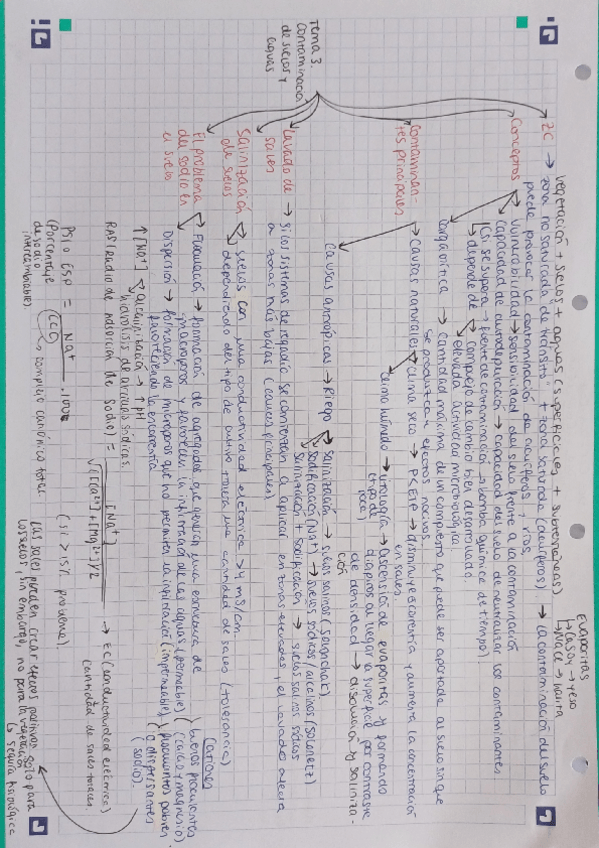 Tema 3.
Contaminación
de suelos y
aguas
Vegetación + suelos + aguas (superficiales + subterráneas)
ZC → zona no saturada "de tránsito" + zona saturada (acuíferos) → la contaminación del suelo
puede provocar la contaminación de acuíferos y ríos.
Evaporitas
↳ CaSO4 → yeso
↳ NaCl → halita
Conceptos → Vulnerabilidad → sensibilidad del suelo frente a la contaminación
Capacidad de autodepuración → capacidad del suelo de neutralizar los contaminantes
(si se supera → fuente de contaminación → bomba química de tiempo).
↳ depende de → complejo de cambio bien desarrollado.
elevada actividad microbiológica.
Carga crítica → cantidad máxima de un compuesto que puede ser aportada al suelo sin que
se produzcan efectos nocivos.
Contaminan-
tes principales → Causas naturales → Clima seco → P<ETP → disminuye escorrentía y aumenta la concentración
en sales.
Clima húmedo → litología → ascensión de evaporitas y formando
diapiros al llegar a superficie por contraste
de densidad → disolución y saliniza-
ción
Causas antrópicas → Riego → Salinización → suelos salinos (Solonchak).
Sodificación (Na+) → suelos sódicos/alcalinos (Solonetz)
Salinización + sodificación → suelos salinos sódicos
Lavado de
sales → Si los sistemas de regadío se comienzan a aplicar en zonas elevadas, el lavado se lleva
a zonas más bajas (cauces principales)
Salinización
de suelos → suelos con una conductividad eléctrica > 4 mS/cm.
dependiendo del tipo de cultivo tolera una cantidad de sales (tolerancia)
El problema
del sodio en
el suelo → Floculación → formación de agregados que genera una estructura de
macroporos y favorecen la infiltración de las aguas (permeable)
Dispersión → formación de microporos que no permite la infiltración (impermeable)
favoreciendo la escorrentía
Cationes
buenos floculantes
(calcio y magnesio)
floculantes pobres
o dispersantes
(sodio).
↑ [Na+] → alcalinización → ↑ pH
hidrólisis de arcillas sódicas.
RAS (Radio de adsorción de sodio) = [Na+] / √([Ca2+]+[Mg2+])/2 → EC (conductividad eléctrica)
cantidad de sales totales
PSI o ESP = Na+ / (CCC) · 100% (si > 15% problema).
(Porcentaje
de sodio
intercambiable)
↳ complejo catiónico total.
Las sales pueden crear efectos positivos solo para
los suelos, sin embargo, no para la vegetación
↳ sequía fisiológica